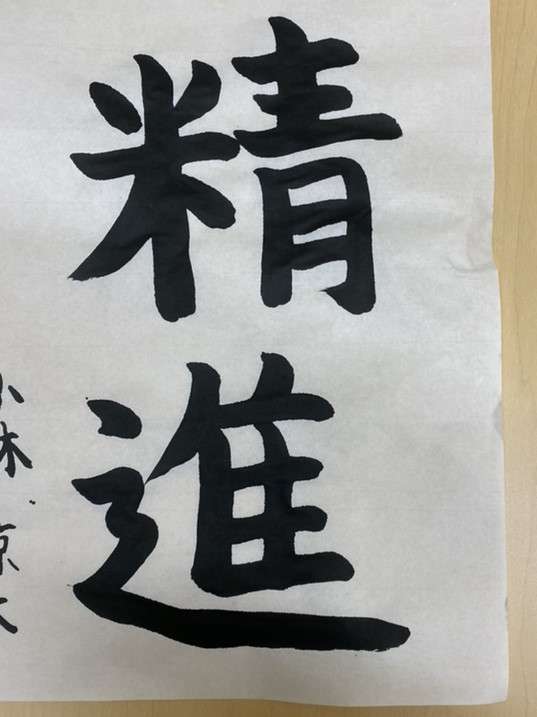 精進
小林